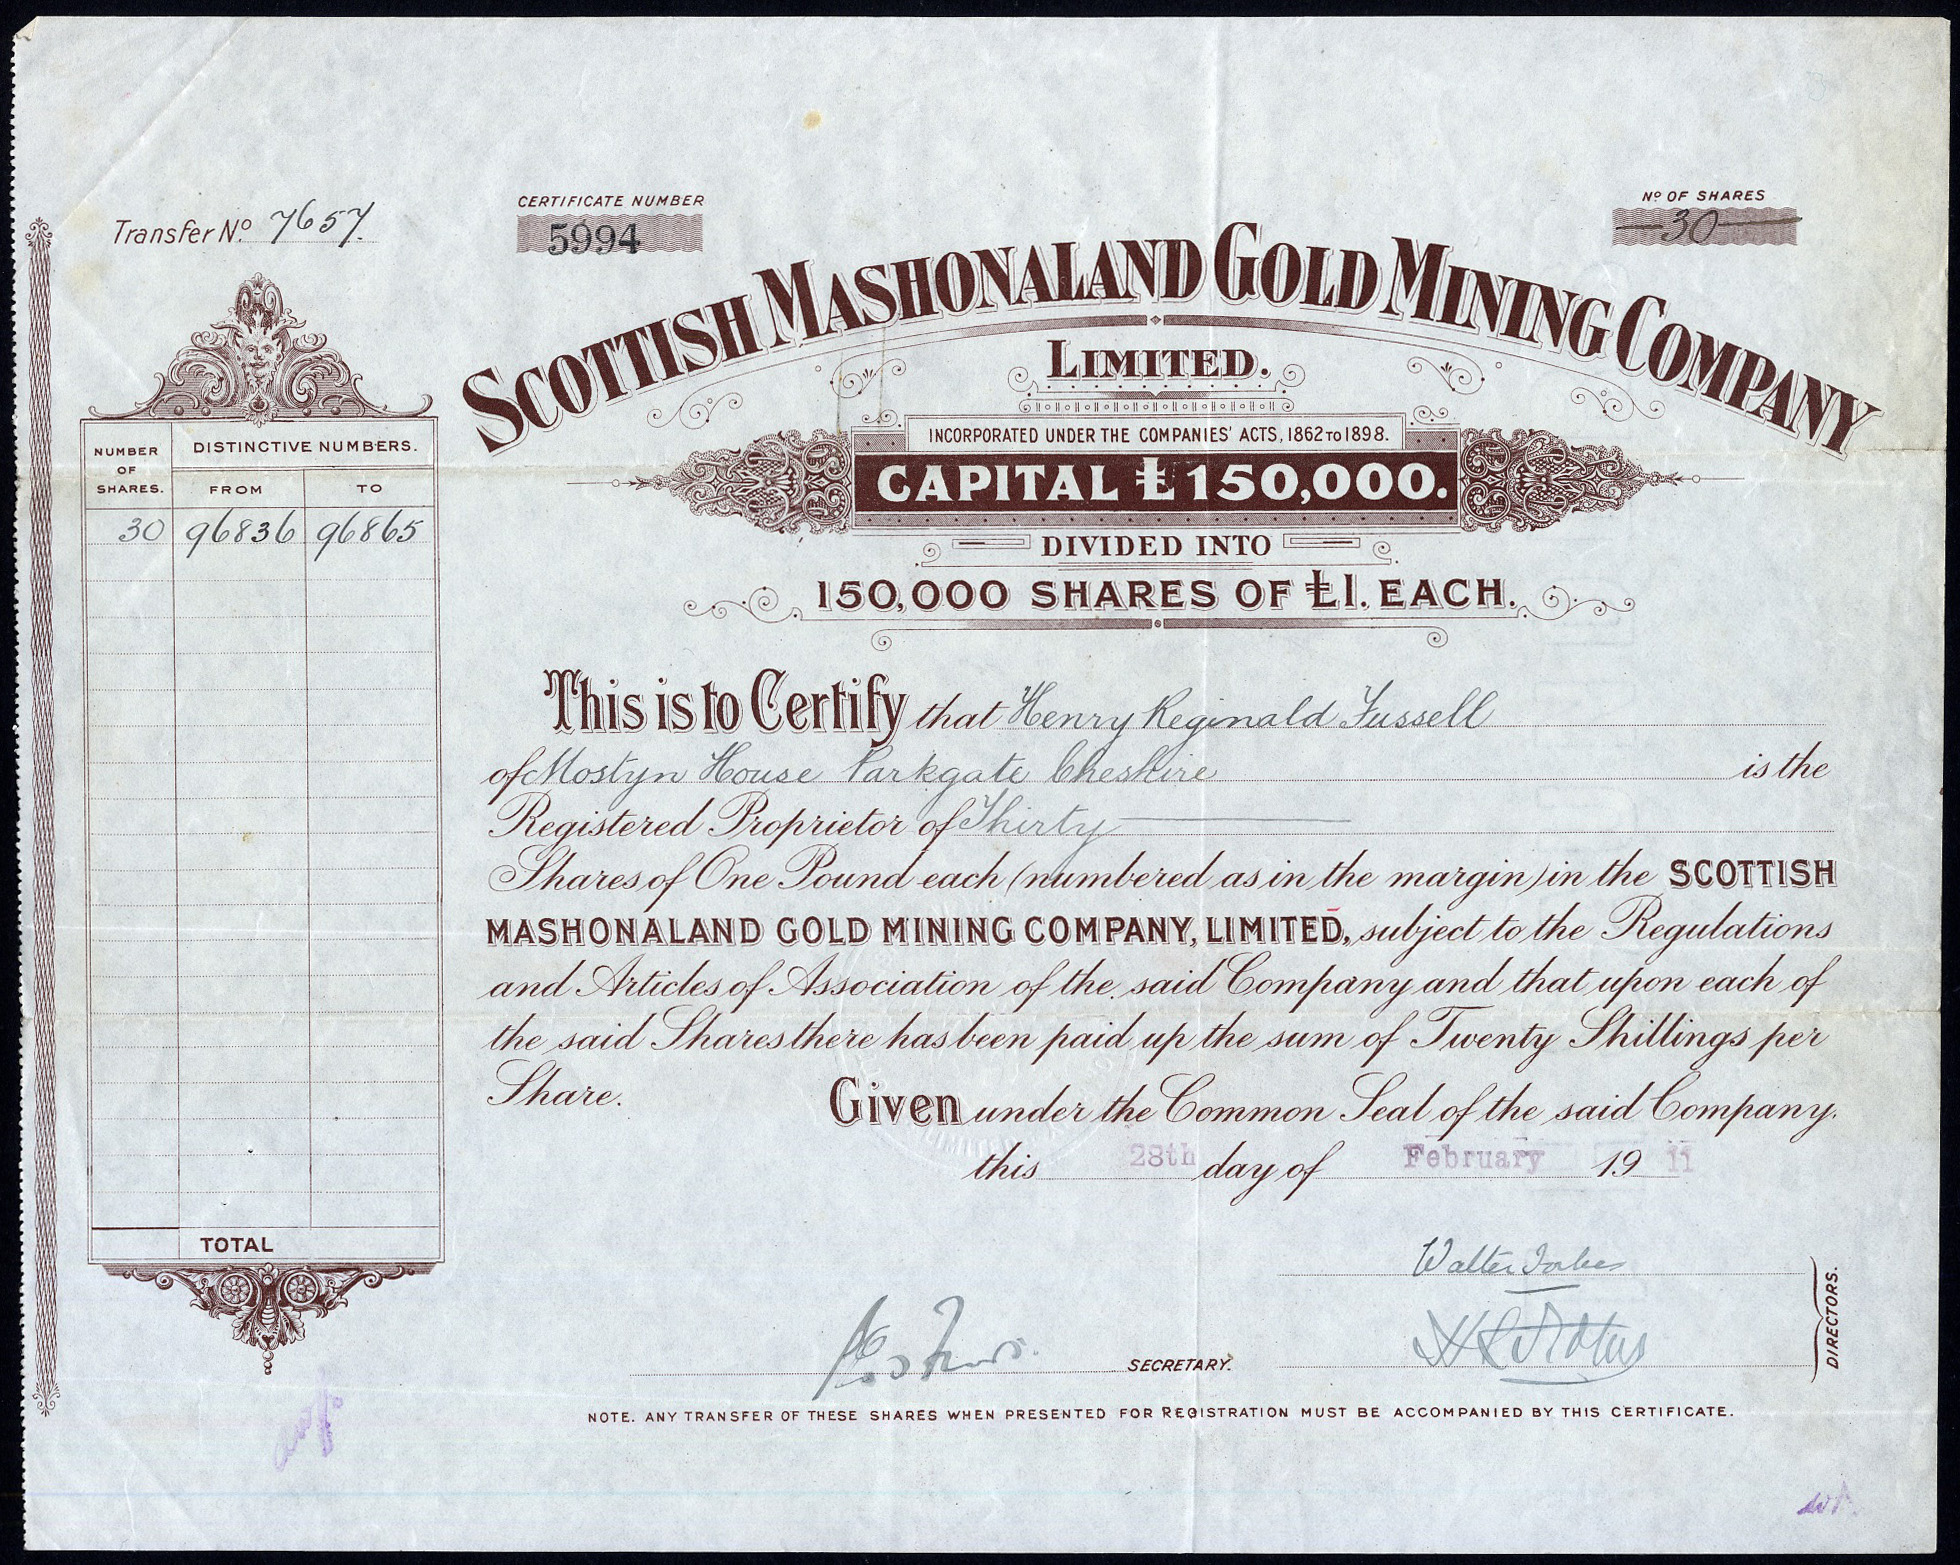 Transfer No. 7657.
CERTIFICATE NUMBER
5994
No. OF SHARES
30
SCOTTISH MASHONALAND GOLD MINING COMPANY
LIMITED.
INCORPORATED UNDER THE COMPANIES' ACTS, 1862 TO 1898.
CAPITAL £150,000.
DIVIDED INTO
150,000 SHARES OF £1. EACH.
NUMBER OF SHARES.
DISTINCTIVE NUMBERS.
FROM TO
30 96836 96865
TOTAL
This is to Certify that Henry Reginald Fussell
of Mostyn House Parkgate Cheshire is the
Registered Proprietor of Thirty
Shares of One Pound each (numbered as in the margin) in the SCOTTISH
MASHONALAND GOLD MINING COMPANY, LIMITED, subject to the Regulations
and Articles of Association of the said Company and that upon each of
the said Shares there has been paid up the sum of Twenty Shillings per
Share.
Given under the Common Seal of the said Company.
this 28th day of February 1911
Walter Forbes
DIRECTORS.
SECRETARY.
NOTE. ANY TRANSFER OF THESE SHARES WHEN PRESENTED FOR REGISTRATION MUST BE ACCOMPANIED BY THIS CERTIFICATE.